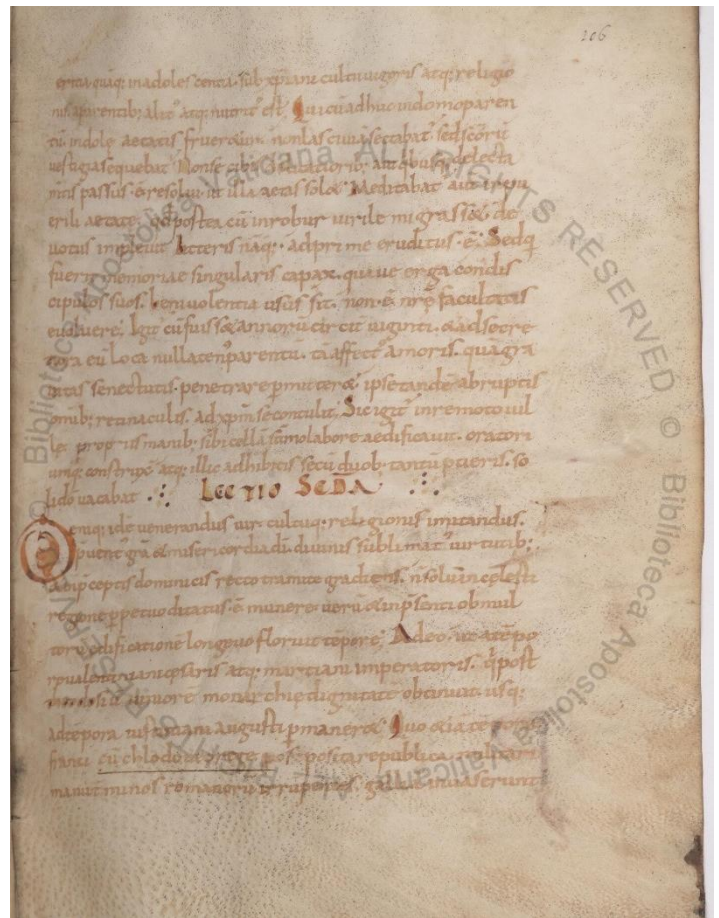 106
q; in adolescentia sub xp̄iani cultu uigoris atq; religio
nis a parentib; alit' atq; nutrit' est. Qui cū adhuc in domo paren
tū indole aetatis frueretur non lasciuia sectabat' sed sc̄orū
uestigia sequebat' Non se cibis
passus ē resolui ut illa aetas solet Meditabat' aut in pu
erili aetate qd postea cū in robur uirile migrasset de
uotus impleuit Litteris naq; adprime eruditus ē. Sed q
fuerit memoriae singularis capax. quaue erga condis
cipulos suos beniuolentia usus sit. non ē nrę facultatis
euoluere. Igit' cū fuisset annorū circit' uiginti. & ad secre
tiora eū loca nullaten' parentū. tā affect' amoris. quā gra
uitas senectutis. penetrare permitteret ipse tandē abruptis
omib; retinaculis. ad xp̄m se contulit. Sic igit' in remoto uil
le propriis manib; sibi cellā sūmo labore aedificauit. oratori
umq; construxit atq; illic adhibitis secū duob; tantū pueris. so
li dō uacabat .:. LECTIO SCDA .:.
Deniq; idē uenerandus uir cultuq; religionis imitandus.
p̄uenit' grā & misericordia dī. diuinis sublimat' uirtutib;
p̄ceptis dominicis recto tramite gradiens. n̄ solū in cęlesti
regione p̄petuo ditatus ē munere. uerū & in p̄senti ob mul
torū edificationē longęuo floruit tēpore; Adeo. ut a tēpo
re ualentiniani cęsaris atq; martiani imperatoris. q post
theodosiū iuniorē monarchię dignitatē obtinuit. usq;
ad tēpora iustiniani augusti p̄maneret Quo & iā tēpore
franci cū chlodoueo rege postposita republica militari
manu t'minos romanorū irrupere. gallię inuaserunt
© Biblioteca Apostolica Vaticana ALL RIGHTS RESERVED © Biblioteca Apostolica Vaticana ALL RIGHTS RESERVED